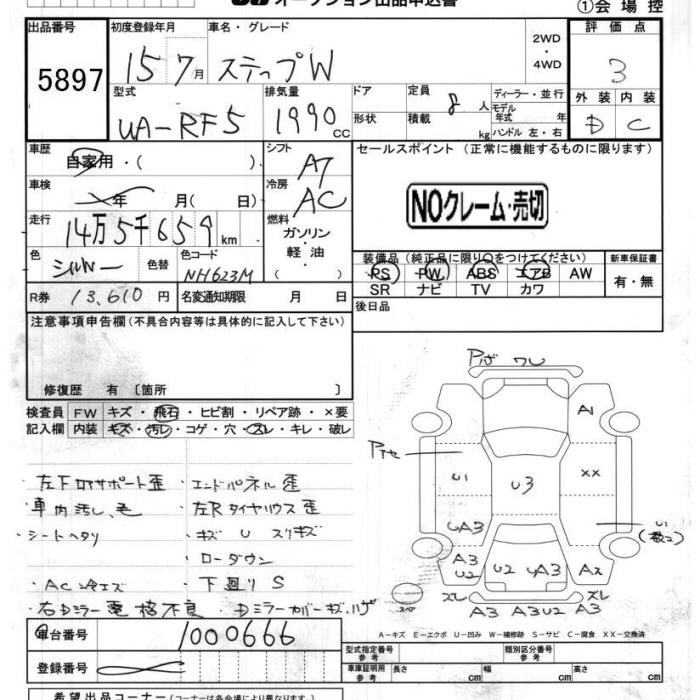 オークション出品申込書
①会場控
出品番号 5897
初度登録年月 15 7月
車名・グレード ステップW
2WD・4WD
評価点 3
型式 UA-RF5
排気量 1990 cc
ドア
形状
定員 8人
積載 kg
ディーラー・並行
モデル年式 年
ハンドル 左・右
外装 D
内装 C
車歴 自家用・( )
シフト AT
セールスポイント (正常に機能するものに限ります)
車検 年 月( 日)
冷房 AC
NOクレーム・売切
走行 14万5千659km
燃料 ガソリン・軽油 ( )
色 シルバー
色替
色コード NH623M
装備品 (純正品に限り○をつけてください)
PS PW ABS エアB AW
SR ナビ TV カワ
新車保証書 有・無
R券 13,610円
名変通知期限 月 日
後日品
注意事項申告欄(不具合内容等は具体的に記入して下さい)
修復歴 有 〔箇所 〕
検査員記入欄
FW キズ・飛石・ヒビ割・リペア跡・×要
内装 キズ・汚レ・コゲ・穴・スレ・キレ・破レ
・左下ロアサポート歪 ・エンドパネル歪
・車内汚し、毛 ・左Rタイヤハウス歪
・シートヘタリ ・キズ U スリキズ
・ローダウン
・AC冷エズ ・下廻りS
・右Dミラー電格不良 ・Dミラーカバーキズ、ハゲ
A1
U1
U3
XX
UA3
A3
U2
U2
UA3
A2
スレ
スレ
A3
A3U2
A3
スペア
A-キズ E-エクボ U-凹み W-補修跡 S-サビ C-腐食 XX-交換済
車台番号 1000666
登録番号
型式指定番号 参考
類別区分番号 参考
車庫証明用 参考 長さ 幅 高さ
希望出品コーナー (コーナーは各会場により異なります)